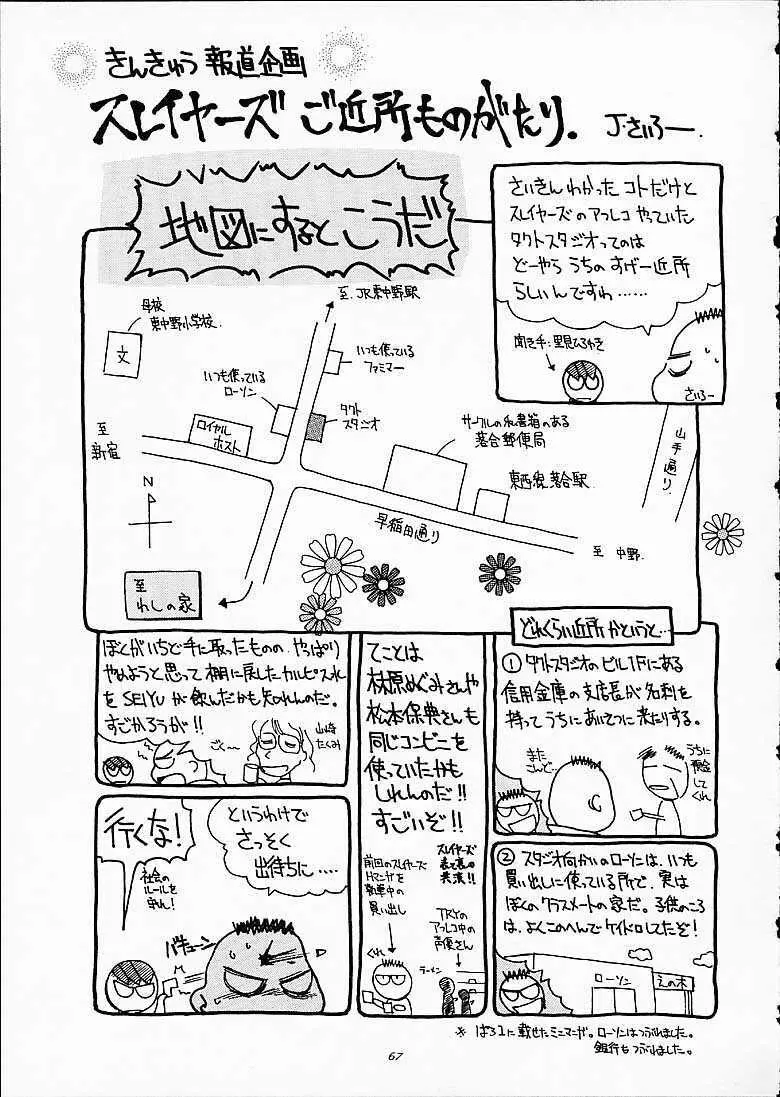 きんきゅう報道企画
スレイヤーズ ご近所ものがたり。
J・さいろー.
地図にするとこうだ
さいきんわかったコトだけど
スレイヤーズのアフレコやっていた
タクトスタジオってのは
どーやらうちのすげー近所
らしいんですわ……
聞き手:里見ひろゆき
さいろー
至.JR東中野駅
母校
東中野小学校.
文
いつも使っている
ファミマー
いつも使っている
ローソン
タクト
スタジオ
ロイヤル
ホスト
至
新宿
サークルの私書箱のある
落合郵便局
東西線落合駅
山手通り
N
早稲田通り
至 中野.
至
わしの家
どれくらい近所かというと…
① タクトスタジオのビル1Fにある
信用金庫の支店長が名刺を
持ってうちにあいさつに来たりする。
また
うちに
預金
して
くれ
② スタジオ向かいのローソンは、いつも
買い出しに使っている所で、実は
ぼくのクラスメートの家だ。子供のころ
は、よくこのへんでケイドロしてたぞ!
ローソン
えの木
てことは
林原めぐみさんや
松本保典さんも
同じコンビニを
使っていたかも
しれんのだ!!
すごいぞ!!
スレイヤーズ
表と裏の
共演!!
前回のスレイヤーズ
Hマンガを
執筆中の
買い出し
TRYの
アフレコ中の
声優さん
くれ
ラーメン
ぼくがいちど手に取ったものの、やっぱり
やめようと思って棚に戻したカルピスを
SEIYUが飲んだかも知れんのだ。
すごかろうが!!
ごく〜
山崎
たくみ
というわけで
さっそく
出待ちに……
行くな!
社会の
ルールを
守れ!
バキューン
※ ぱろ1に載せたミニマンガ。ローソンはつぶれました。
銀行もつぶれました。
67